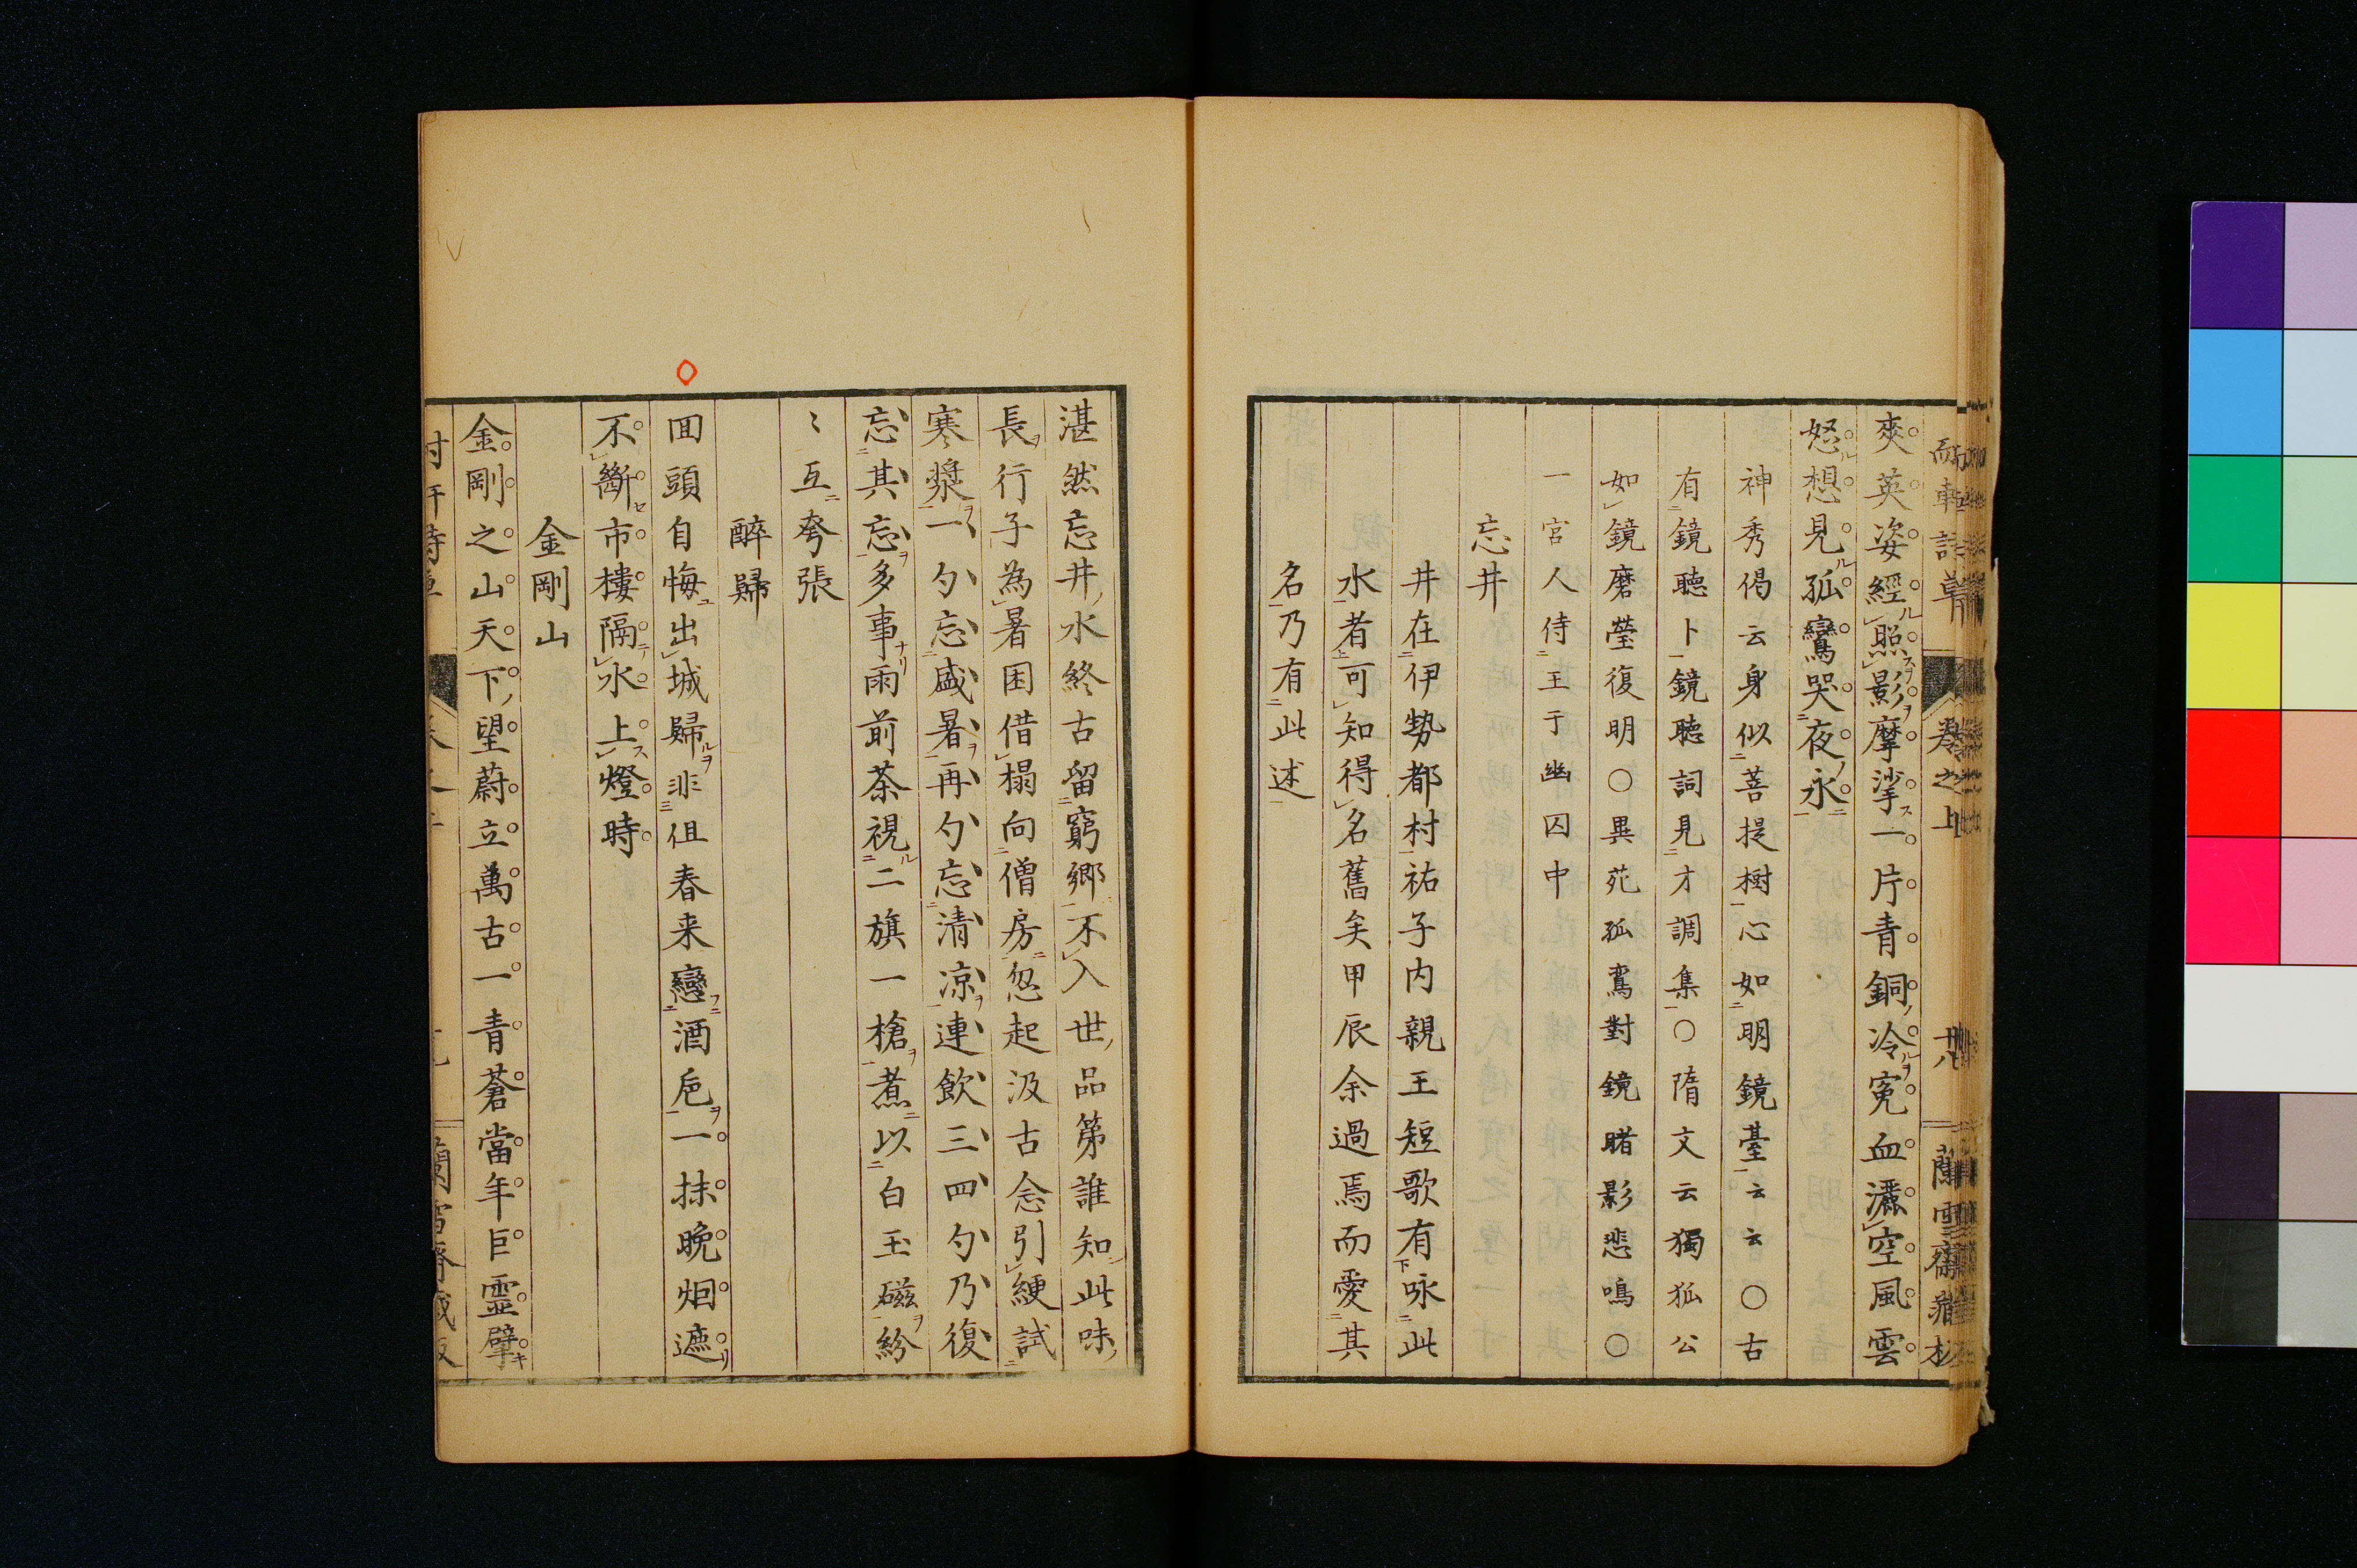 爽英姿經照影摩挲一片青銅冷寃血灑空風雲
怒想見孤鸞哭夜永
神秀偈云身似菩提樹心如明鏡臺云云〇古
有鏡聽卜鏡聽詞見才調集〇隋文云獨狐公
如鏡磨瑩復明〇異苑孤鸞對鏡睹影悲鳴〇
一宮人侍王于幽囚中
忘井
井在伊勢都村祐子内親王短歌有咏此
水者可知得名舊矣甲辰余過焉而愛其
名乃有此述
湛然忘井水終古留窮鄉不入世品第誰知此味
長行子為暑困借榻向僧房忽起汲古念引綆試
寒漿一勺忘盛暑再勺忘清凉連飲三四勺乃復
忘其忘多事雨前茶視二旗一槍煮以白玉磁紛
〻互夸張
醉歸
回頭自悔出城歸非但春来戀酒卮一抹晚烟遮
不斷市樓隔水上燈時
金剛山
金剛之山天下望蔚立萬古一青蒼當年巨霊擘
卷之上
十八